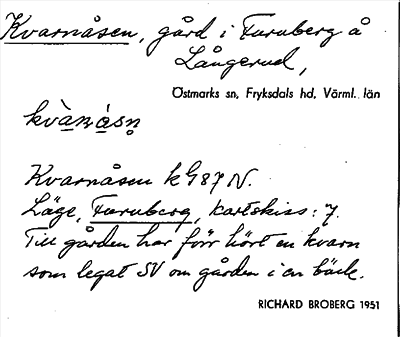 Kvarnåsen, gård i Furuberg å
Långerud,
Östmarks sn, Fryksdals hd, Värml. län
kvànásn
Kvarnåsen k G87 N.
Läge, Furuberg, kartskiss: 7.
Till gården har förr hört en kvarn
som legat SV om gården i en bäck.
RICHARD BROBERG 1951